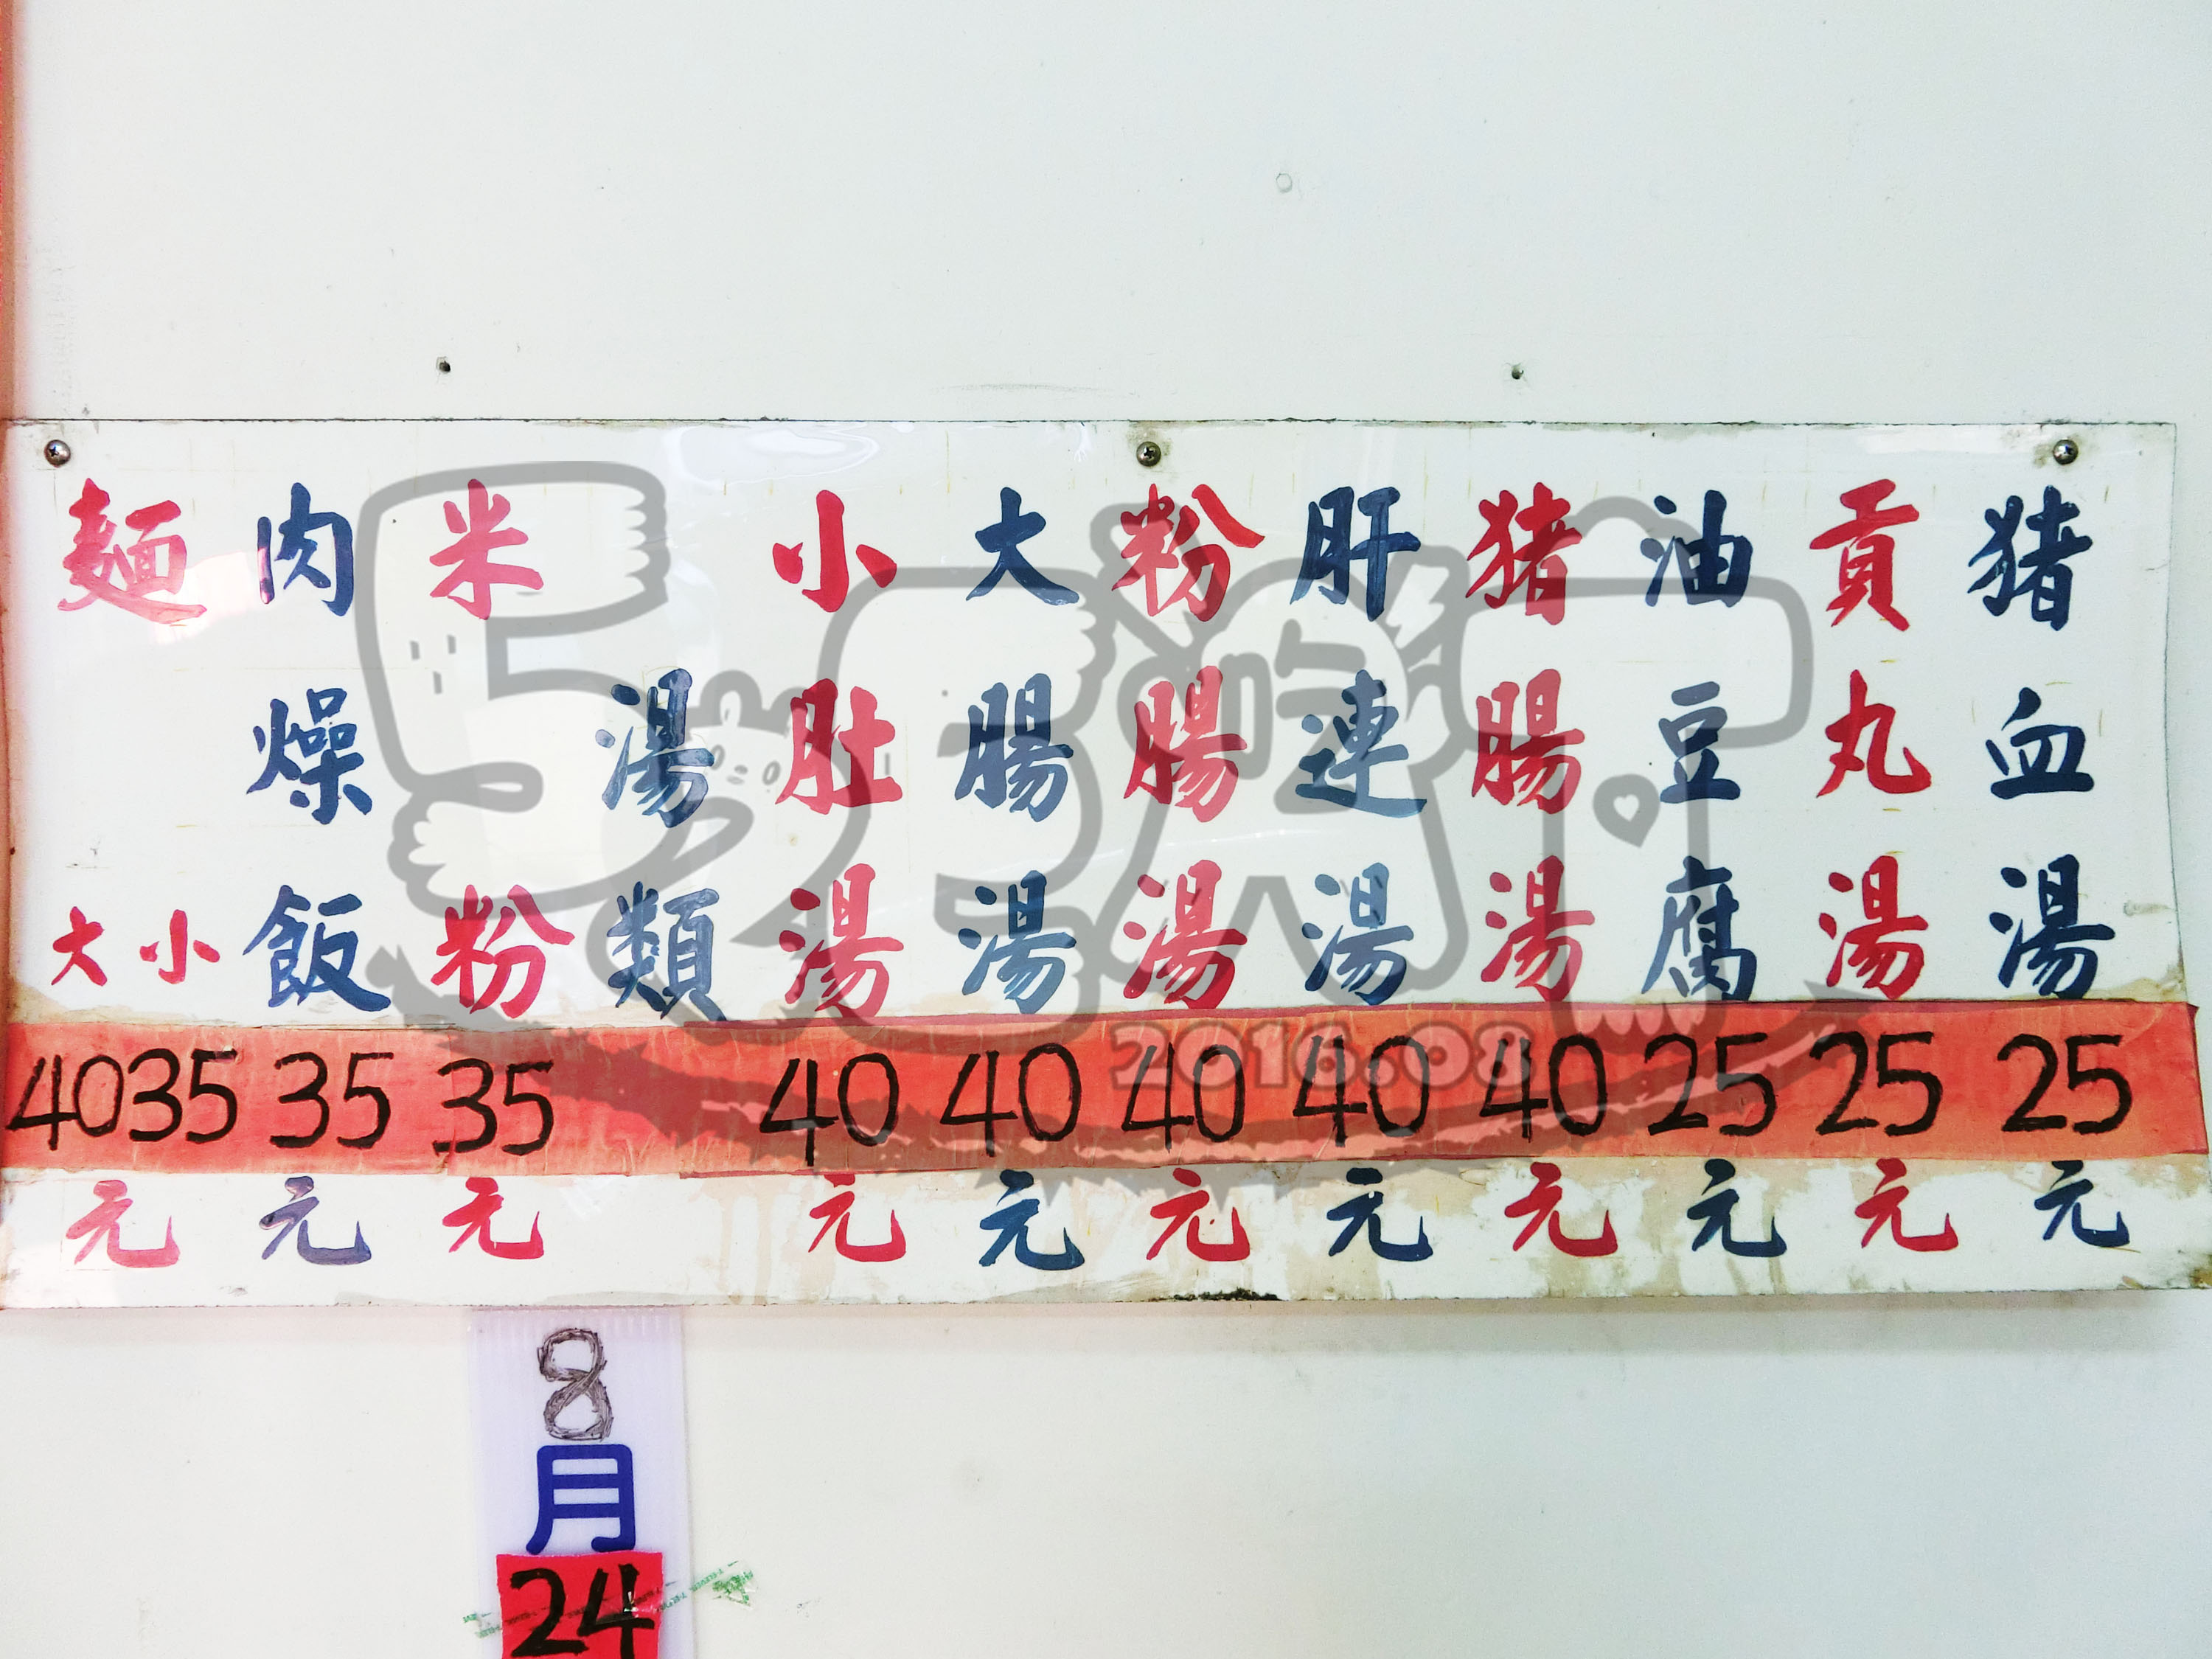 麵 大 小 4035 元
肉燥飯 35 元
米粉 35 元
湯類
小肚湯 40 元
大腸湯 40 元
粉腸湯 40 元
肝連湯 40 元
猪腸湯 40 元
油豆腐 25 元
貢丸湯 25 元
猪血湯 25 元
8月
24
2016.08